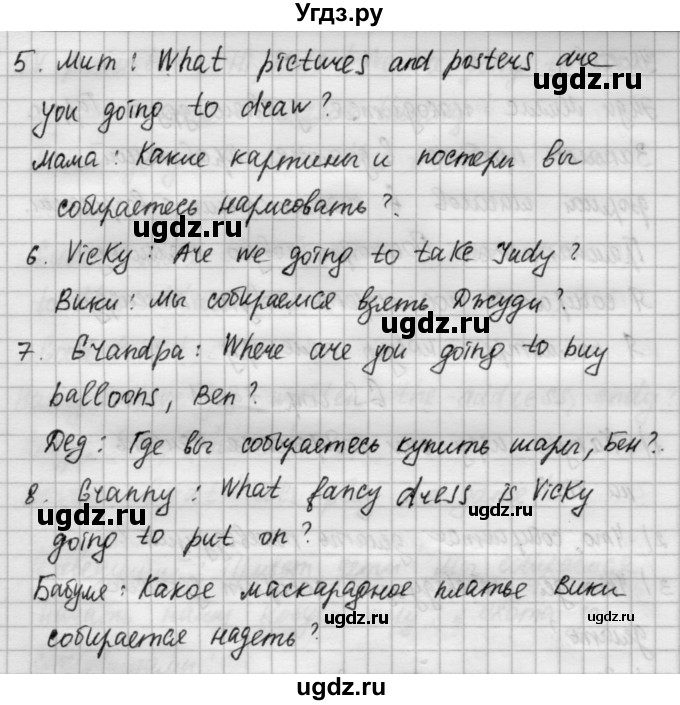 Угдз.ру
5. Mum: What pictures and posters are
ugdz.ru
you going to draw?
Мама: Какие картины и постеры вы
собираетесь нарисовать?
ugdz.ru
6. Vicky: Are we going to take Judy?
Вики: Мы собираемся взять Джуди?
ugdz.ru
7. Grandpa: Where are you going to buy
balloons, Ben?
ugdz.ru
Дед: Где вы собираетесь купить шары, Бен?
8. Granny: What fancy dress is Vicky
ugdz.ru
ugdz.ru
going to put on?
Бабуля: Какое маскарадное платье Вики
ugdz.ru
собирается надеть?
ugdz.ru
ugdz.ru